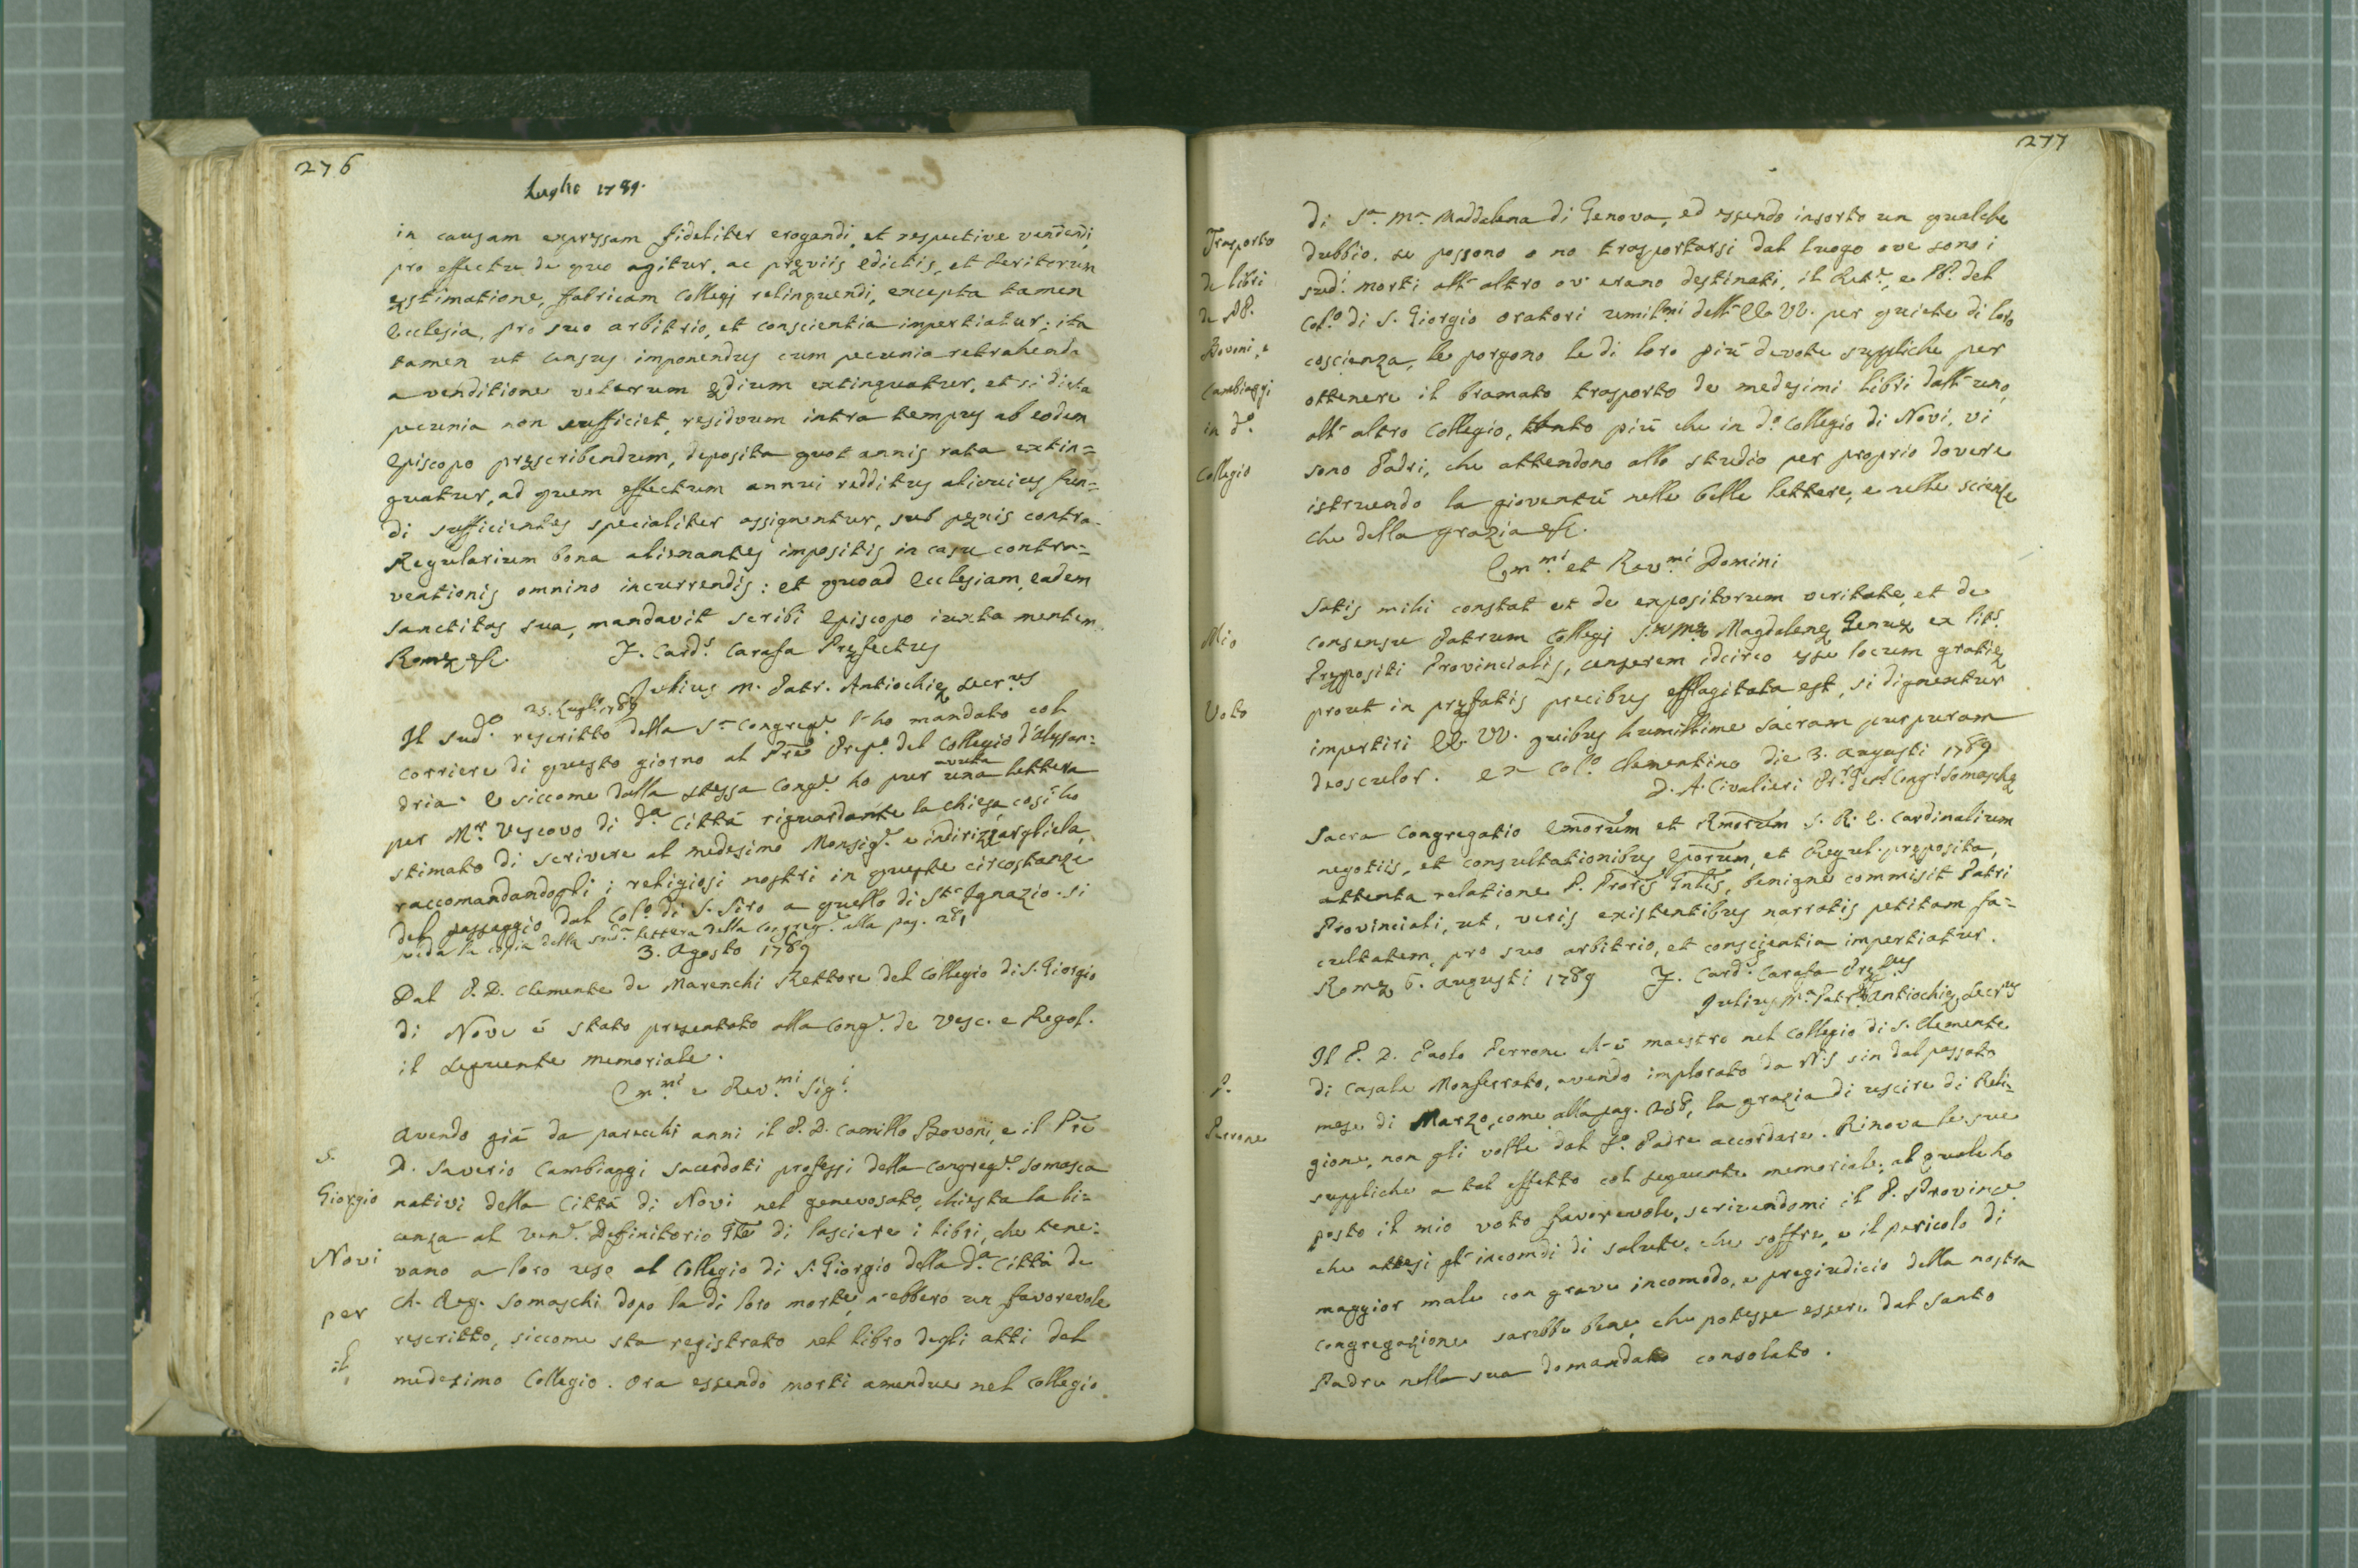 276
Luglio 1789.
in causam expressam fideliter erogandi, et respective vendendi
pro effectu, de quo agitur, ac præviis edictis, et Peritorum
æstimatione, fabricam Collegij relinquendi, excepta tamen
Ecclesia, pro suo arbitrio, et conscientia impertiatur; ita
tamen ut census imponendus cum pecunia retrahenda
a venditione veterum ædium extinguatur, et si dicta
pecunia non sufficiet, residuum intra tempus ab eodem
Episcopo præscribendum, deposita quot annis rata extin=
guatur, ad quem effectum annui redditus alicuius fun=
di sufficientes specialiter assignentur, sub pænis contra
Regularium bona alienantes impositis in casu contra=
ventionis omnino incurrendis: et quoad Ecclesiam, eadem
Sanctitas sua, mandavit scribi Episcopo iuxta mentem.
Romæ &c. F. Card.s Carafa Præfectus
Julius M. Patr. Antiochiæ Secr.us
25. Luglio 1789
Il sud.o rescritto della S.a Congreg.e l'ho mandato col
corriere di questo giorno al Prē Prep.o del Collegio d'Alessan=
dria. E siccome dalla stessa Cong.e ho pur avuta una lettera
per M.r Vescovo di d.a Città riguardante la chiesa, così ho
stimato di scrivere al medesimo Monsig.e e indirizzargliela,
raccomandandogli i religiosi nostri in queste circostanze
del passaggio dal Col.o di S. Siro a quello di St.o Ignazio. si
veda la copia della sud.a lettera della Congreg.e alla pag. 281
3. Agosto 1789
Dal P. D. Clemente de Marenchi Rettore del Collegio di S. Giorgio
di Novi è stato presentato alla Cong.e de Vesc. e Regol.
il seguente memoriale.
Em.mi e Rev.mi Sig.i
S.
Giorgio
Novi
per
il
Avendo già da parecchi anni il P. D. Camillo Bovoni, e il Prē
D. Saverio Cambiaggi sacerdoti professi della Congreg.e Somasca
nativi della Città di Novi nel genovosato, chiesta la li=
cenza al Ven.e Definitorio Gñle di lasciare i libri, che tene=
vano a loro uso al Collegio di S. Giorgio della d.a Città de
Ch. Reg. Somaschi dopo la di loro morte, n'ebbero un favorevole
rescritto, siccome sta registrato nel libro degli atti del
medesimo Collegio. Ora essendo morti amendue nel Collegio
277
Trasporto
de libri
de PP.
Bovoni, e
Cambiaggi
in d.o
Collegio
di S.a M.a Maddalena di Genova, ed essendo insorto un qualche
dubbio, se possono o no trasportarsi dal luogo ove sono i
sud.i morti all'altro ov'erano destinati, il Rett.e, e PP. del
Col.o di S. Giorgio oratori umil.mi dell'EE. VV. per quiete di loro
coscienza, le porgono le di loro più devote suppliche per
ottenere il bramato trasporto de medesimi libri dall'uno,
all'altro Collegio, tanto più che in d.o Collegio di Novi, vi
sono Padri, che attendono allo studio per proprio dovere
istruendo la gioventù nelle belle lettere, e nelle scienze
che della grazia &c.
Em.mi et Rev.mi Domini
Mio
Voto
Satis mihi constat et de expositorum veritate, et de
consensu Patrum Collegj S. M.æ Magdalenæ Genuæ ex lit.s
Præpositi Provincialis, censerem idcirco esse locum gratiæ
prout in præfatis precibus efflagitata est, si dignentur
impertiri EE. VV. quibus humillime sacram purpuram
deosculor. Ex Col.o Clementino die 3. Augusti 1789
D. A. Civalieri Pr.r Gen.l Cong.s Somaschæ
Sacra Congregatio Emōrum et Rmōrum S. R. E. Cardinalium
negotiis, et consultationibus Epōrum, et Regul. præposita,
attenta relatione P. Prōris Gnl̄is, benigne commisit Patri
Provinciali, ut, veris existentibus narratis petitam fa=
cultatem, pro suo arbitrio, et conscientia impertiatur.
Romæ 6. Augusti 1789 F. Card.s Carafa Præf.us
Julius M.a Patr. Antiochiæ, Secr.us
P.
Perrone
Il P. D. Paolo Perrone ch'è maestro nel Collegio di S. Clemente
di Casale Monferrato, avendo implorato da N.S. sin dal passato
mese di Marzo, come alla pag. 258, la grazia di uscire di Reli=
gione, non gli volle dal S.o Padre accordare. Rinova le sue
suppliche a tal effetto col seguente memoriale, al quale ho
posto il mio voto favorevole, scrivendomi il P. Province
che attesi gl'incomodi di salute, che soffre, e il pericolo di
maggior male con grave incomodo, e pregiudicio della nostra
Congregazione sarebbe bene, che potesse essere dal Santo
Padre nella sua domandato consolato.